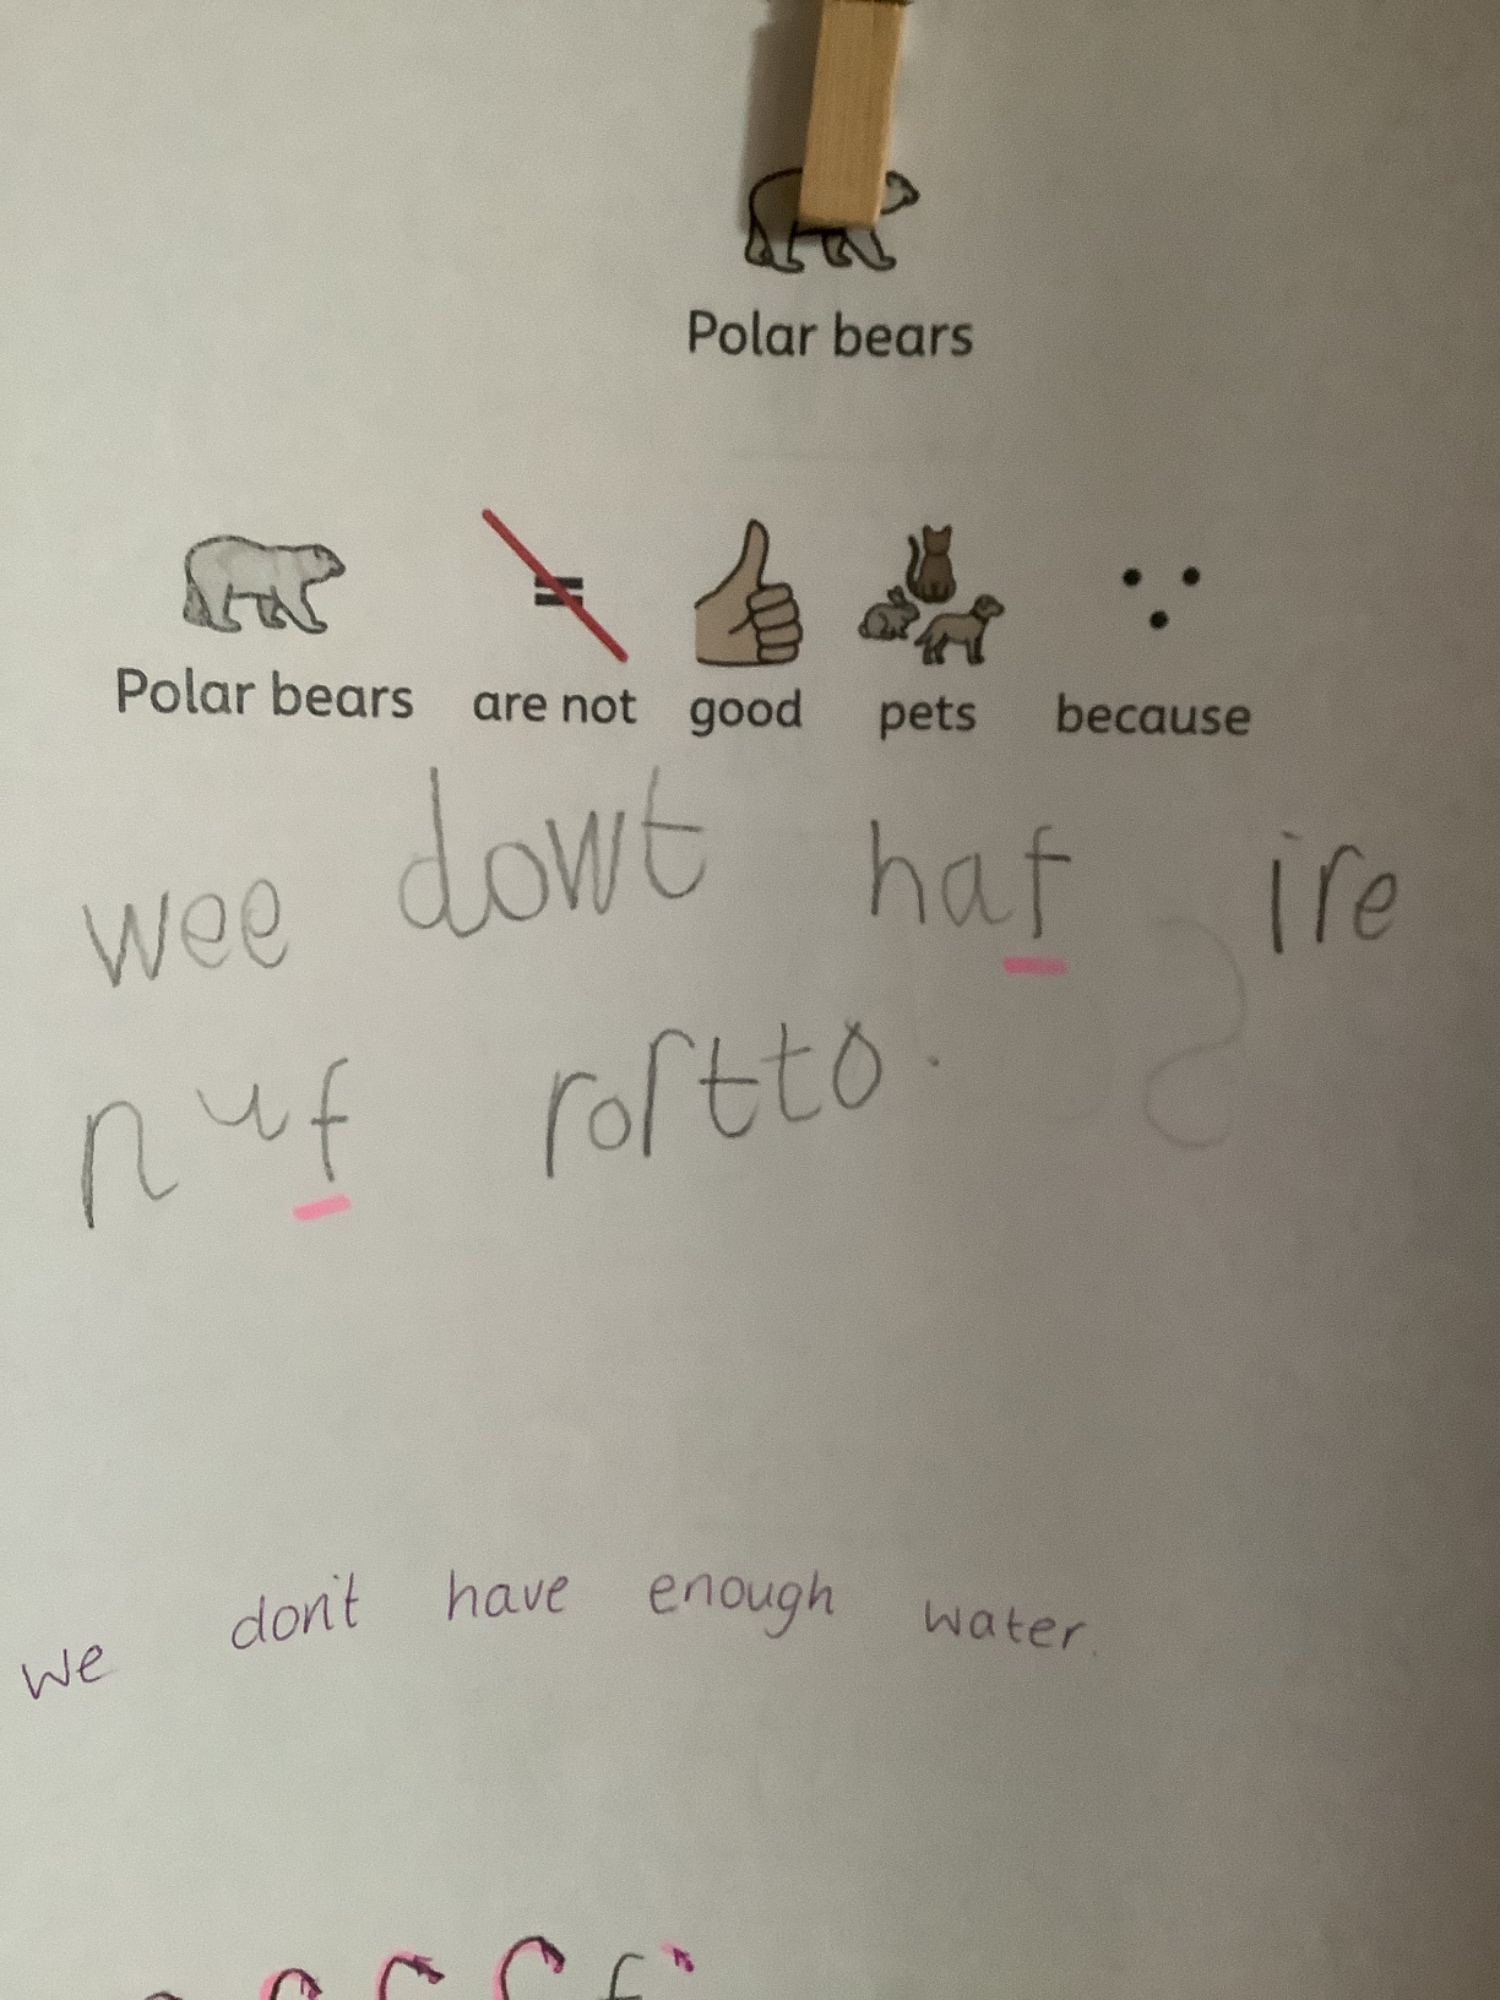 Polar bears
Polar bears are not good pets because
wee dowt haf ire
nuf rortto.
we don't have enough water.